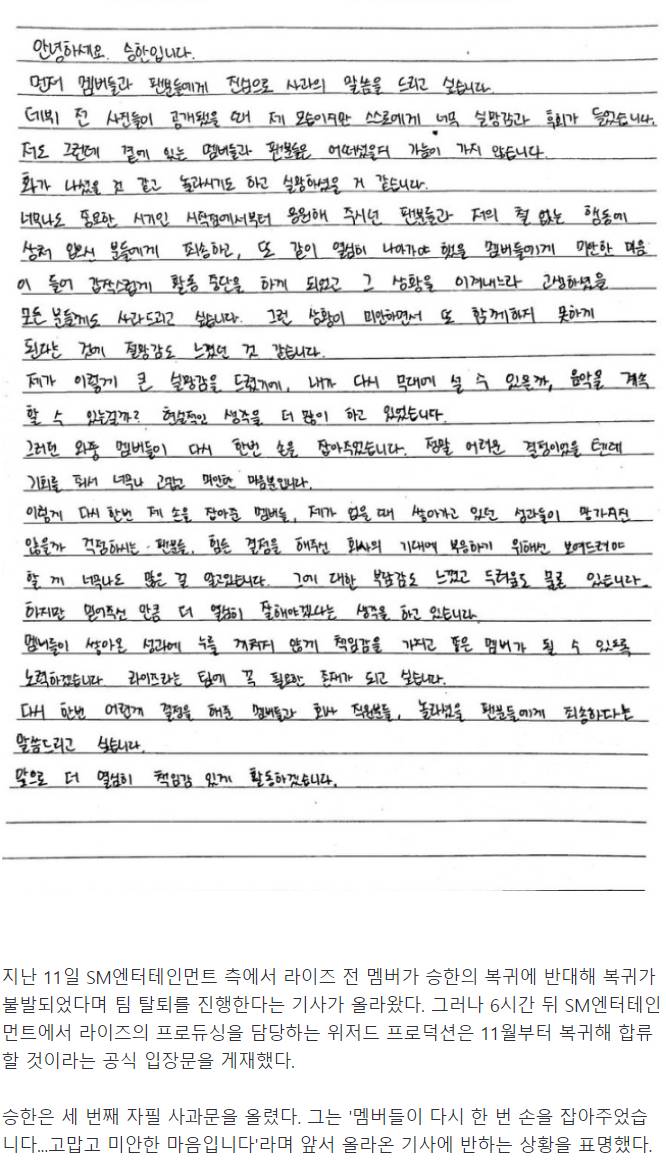 안녕하세요. 승한입니다.
먼저 멤버들과 팬분들에게 진심으로 사과의 말씀을 드리고 싶습니다.
데뷔 전 사진들이 공개됐을 때 제 모습이지만 스스로에게 너무 실망감과 후회가 들었습니다.
저도 그런데 곁에 있는 멤버들과 팬분들은 어떠셨을지 가늠이 가지 않습니다.
화가 나셨을 것 같고 놀라시기도 하고 실망하셨을 거 같습니다.
너무나도 중요한 시기인 시작점에서부터 응원해 주시던 팬분들과 저의 철 없는 행동에
상처 입으신 분들에게 죄송하고, 또 같이 열심히 나아가야 했을 멤버들에게 미안한 마음
이 들어 갑작스럽게 활동 중단을 하게 되었고 그 상황을 이겨내느라 고생하셨을
모든 분들께도 사과드리고 싶습니다. 그런 상황이 미안하면서 또 함께하지 못하게
된다는 것에 절망감도 느꼈던 것 같습니다.
제가 이렇게 큰 실망감을 드렸기에, 내가 다시 무대에 설 수 있을까, 음악을 계속
할 수 있는걸까? 현실적인 생각을 더 많이 하고 있었습니다.
그러던 와중 멤버들이 다시 한번 손을 잡아주었습니다. 정말 어려운 결정이었을 텐데
기회를 줘서 너무나 고맙고 미안한 마음뿐입니다.
이렇게 다시 한번 제 손을 잡아준 멤버들, 제가 없을 때 쌓아가고 있던 성과들이 망가지진
않을까 걱정하시는 팬분들, 힘든 결정을 해주신 회사의 기대에 부응하기 위해선 보여드려야
할 게 너무나도 많은 걸 알고있습니다. 그에 대한 부담감도 느꼈고 두려움도 물론 있습니다.
하지만 믿어주신 만큼 더 열심히 잘해야겠다는 생각을 하고 있습니다.
멤버들이 쌓아온 성과에 누를 끼치지 않게 책임감을 가지고 좋은 멤버가 될 수 있도록
노력하겠습니다. 라이즈라는 팀에 꼭 필요한 존재가 되고 싶습니다.
다시 한번 어렵게 결정을 해준 멤버들과 회사 직원분들, 놀라셨을 팬분들에게 죄송하다는
말씀드리고 싶습니다.
앞으로 더 열심히 책임감 있게 활동하겠습니다.
지난 11일 SM엔터테인먼트 측에서 라이즈 전 멤버가 승한의 복귀에 반대해 복귀가
불발되었다며 팀 탈퇴를 진행한다는 기사가 올라왔다. 그러나 6시간 뒤 SM엔터테인
먼트에서 라이즈의 프로듀싱을 담당하는 위저드 프로덕션은 11월부터 복귀해 합류
할 것이라는 공식 입장문을 게재했다.
승한은 세 번째 자필 사과문을 올렸다. 그는 '멤버들이 다시 한 번 손을 잡아주었습
니다...고맙고 미안한 마음입니다'라며 앞서 올라온 기사에 반하는 상황을 표명했다.